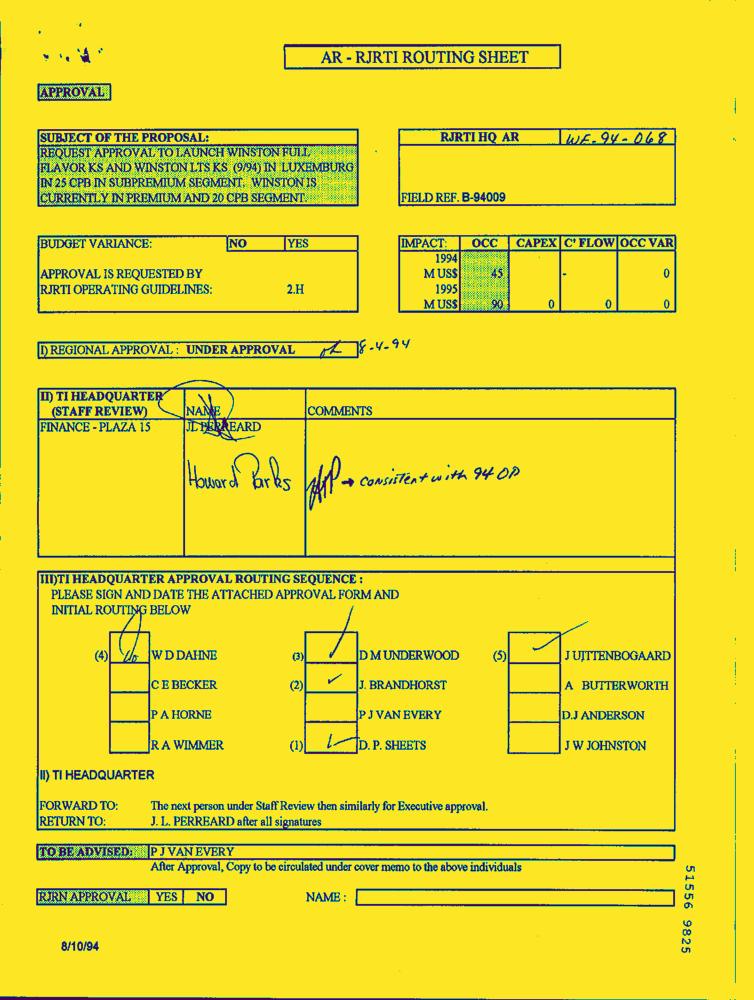 AR - RJRTI ROUTING SHEET
APPROVAL
SUBJECT OF THE PROPOSAL:
REQUEST APPROVAL TO LAUNCH WINSTON FULL
FLAVOR KS AND WINSTON LTS KS (9/94) IN LUXEMBURG
IN 25 CPB IN SUBPREMIUM SEGMENT. WINSTON IS
CURRENTLY IN PREMIUM AND 20 CPB SEGMENT.
RJRTI HQ AR WE-94-068
FIELD REF. B-94009
BUDGET VARIANCE: NO YES
APPROVAL IS REQUESTED BY
RJRTI OPERATING GUIDELINES: 2.H
IMPACT: OCC CAPEX C' FLOW OCC VAR
1994
M US$ 45 - 0
1995
M US$ 90 0 0 0
I) REGIONAL APPROVAL : UNDER APPROVAL 8-4-94
II) TI HEADQUARTER
(STAFF REVIEW) NAME COMMENTS
FINANCE - PLAZA 15 JL PERREARD
Howard Parks HP → consistent with 94 OP
III)TI HEADQUARTER APPROVAL ROUTING SEQUENCE :
PLEASE SIGN AND DATE THE ATTACHED APPROVAL FORM AND
INITIAL ROUTING BELOW
(4) W D DAHNE (3) D M UNDERWOOD (5) J UITTENBOGAARD
C E BECKER (2) J. BRANDHORST A BUTTERWORTH
P A HORNE P J VAN EVERY D.J ANDERSON
R A WIMMER (1) D. P. SHEETS J W JOHNSTON
II) TI HEADQUARTER
FORWARD TO: The next person under Staff Review then similarly for Executive approval.
RETURN TO: J. L. PERREARD after all signatures
TO BE ADVISED: P J VAN EVERY
After Approval, Copy to be circulated under cover memo to the above individuals
RJRN APPROVAL YES NO NAME :
8/10/94
51556 9825